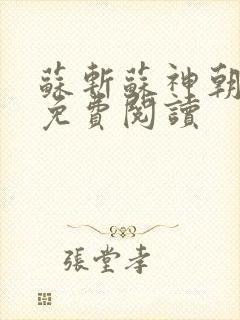 蘇斬蘇神朝
免費閱讀
張堂幸